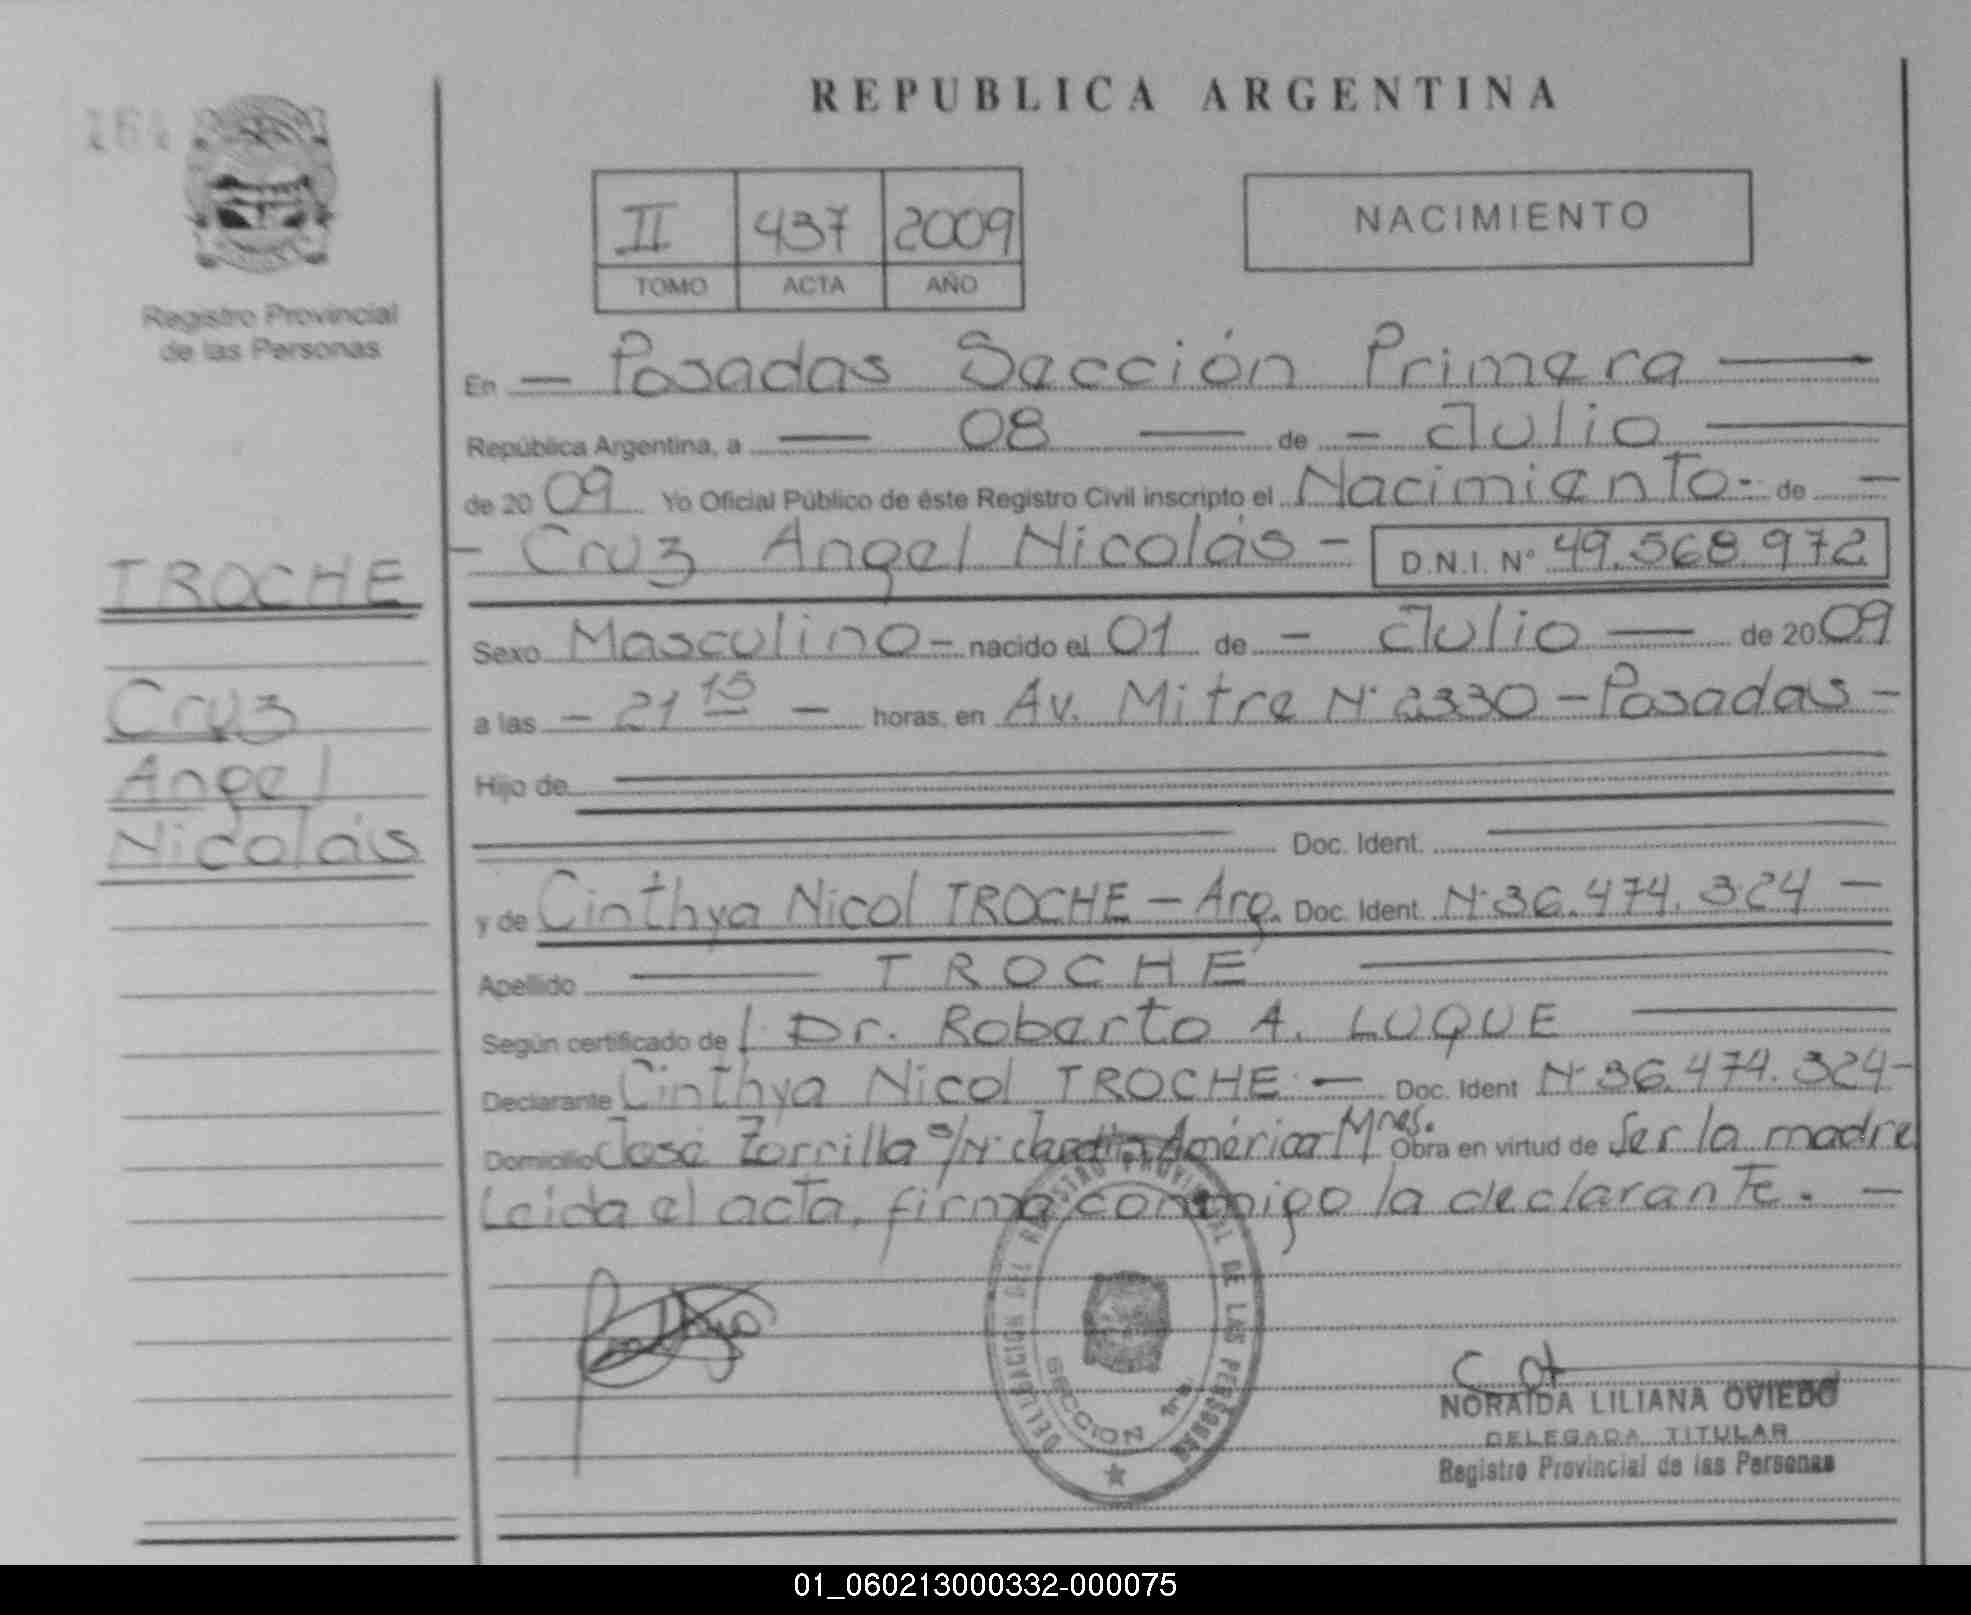 164
REPUBLICA ARGENTINA
II 437 2009
TOMO ACTA AÑO
NACIMIENTO
Registro Provincial
de las Personas
En — Posadas Sección Primera —
República Argentina, a — 08 — de — Julio —
de 20 09 Yo Oficial Público de éste Registro Civil inscripto el Nacimiento - de —
— Cruz Angel Nicolás — D.N.I. Nº 49.568.972
TROCHE
Cruz
Angel
Nicolás
Sexo Masculino — nacido el 01 de — Julio — de 20 09
a las — 21 15 — horas, en Av. Mitre Nº 2330 — Posadas —
Hijo de
Doc. Ident.
y de Cinthya Nicol TROCHE — Arg. Doc. Ident. Nº 36.474.324 —
Apellido — TROCHE —
Según certificado de l. Dr. Roberto A. LUQUE —
Declarante Cinthya Nicol TROCHE — Doc. Ident Nº 36.474.324 —
Domicilio José Zorrilla s/Nº Jardín América Mnes. Obra en virtud de Ser la madre
Leida el acta, firma conmigo la declarante. —
DELEGACION DEL REGISTRO PROVINCIAL DE LAS PERSONAS
SECCION 1ra.
NORAIDA LILIANA OVIEDO
DELEGADA TITULAR
Registro Provincial de las Personas
01_060213000332-000075